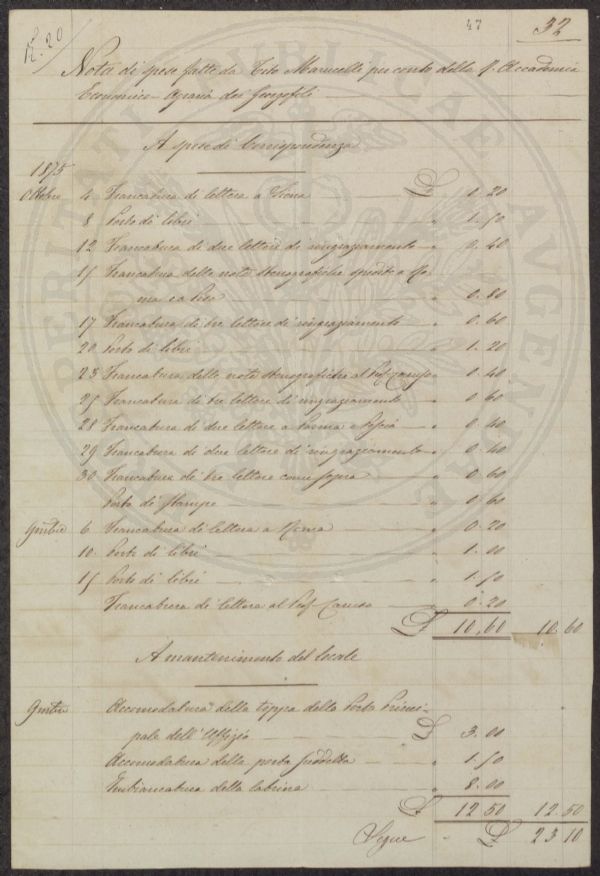 N. 20
47
32
Nota di spese fatte da Tito Marucelli per conto della R. Accademia
Economico-Agraria dei Georgofili
A spese di Corrispondenza
1875
Ottobre 4 Francatura di lettera a Siena £ 0.20
8 Porto di libri " 1.50
12 Francatura di due lettere di ringraziamento " 0.40
15 Francatura delle note stenografiche spedite a Ro-
ma e a Pisa " 0.80
17 Francatura di tre lettere di ringraziamento " 0.60
20 Porto di libri " 1.20
23 Francatura delle note stenografiche al Prof. Caruso " 0.40
25 Francatura di tre lettere di ringraziamento " 0.60
28 Francatura di due lettere a Parma e Pescia " 0.40
29 Francatura di due lettere di ringraziamento " 0.40
30 Francatura di tre lettere come sopra " 0.60
Porto di stampe " 0.60
9mbre 6 Francatura di lettera a Roma " 0.20
10 Porto di libri " 1.00
15 Porto di libri " 1.50
Francatura di lettera al Prof. Caruso " 0.20
£ 10.60 10.60
A mantenimento del locale
9mbre Accomodatura della toppa della Porta Princi-
pale dell'Uffizio £ 3.00
Accomodatura della porta suddetta " 1.50
Imbiancatura della latrina " 8.00
£ 12.50 12.50
Segue £ 23.10
PROSPERITATI PUBLICAE AUGENDAE